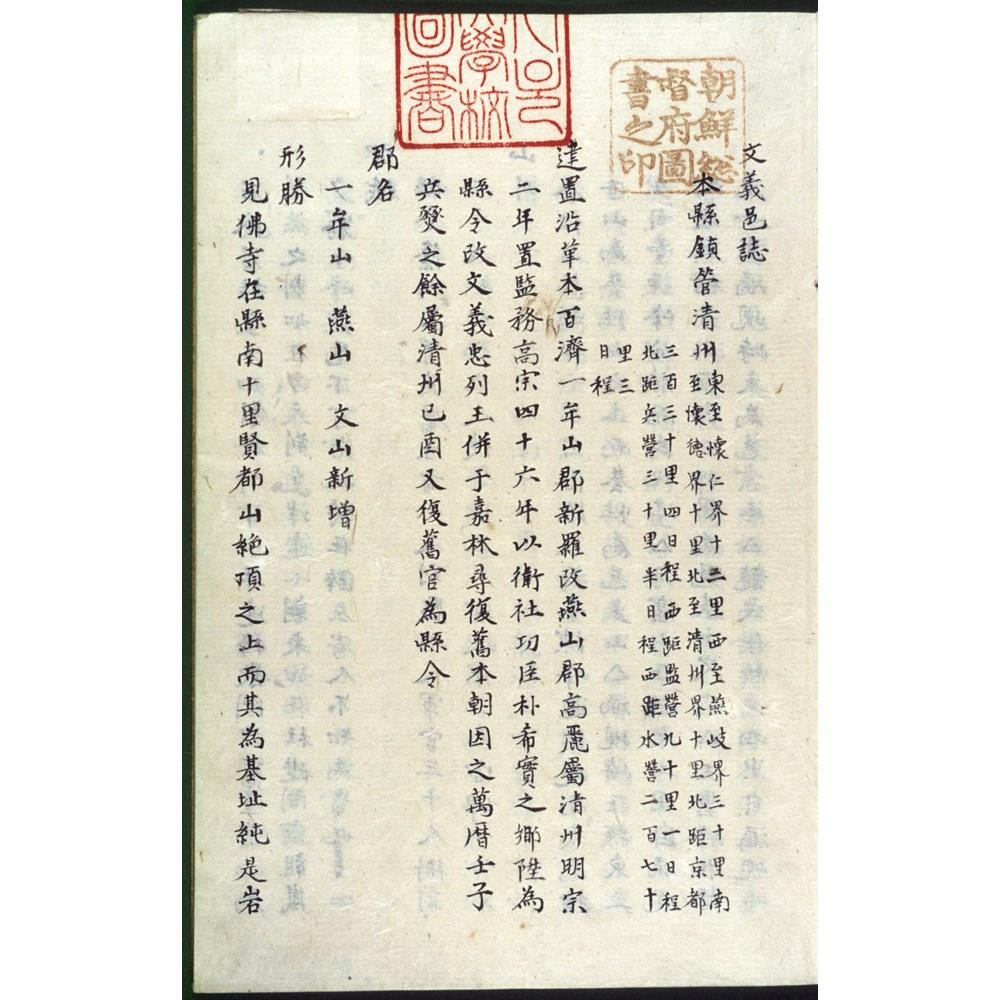 朝鮮総
督府圖
書之印
學校
圖書
文義邑誌
本縣鎮管清州東至懷仁界十二里西至燕岐界三十里南
至懷德界十里北至清州界十里北距京都
三百三十里四日程西距監營九十里一日程
北距兵營三十里半日程西距水營二百七十
里三
日程
建置沿革本百濟一牟山郡新羅改燕山郡高麗屬清州明宗
二年置監務高宗四十六年以衛社功臣朴希實之鄉陞為
縣令改文義忠列王併于嘉林尋復舊本朝因之萬曆壬子
兵燹之餘屬清州已酉又復舊官為縣令
郡名
一牟山 燕山 文山新增
形勝
見佛寺在縣南十里賢都山絶頂之上而其為基址純是岩